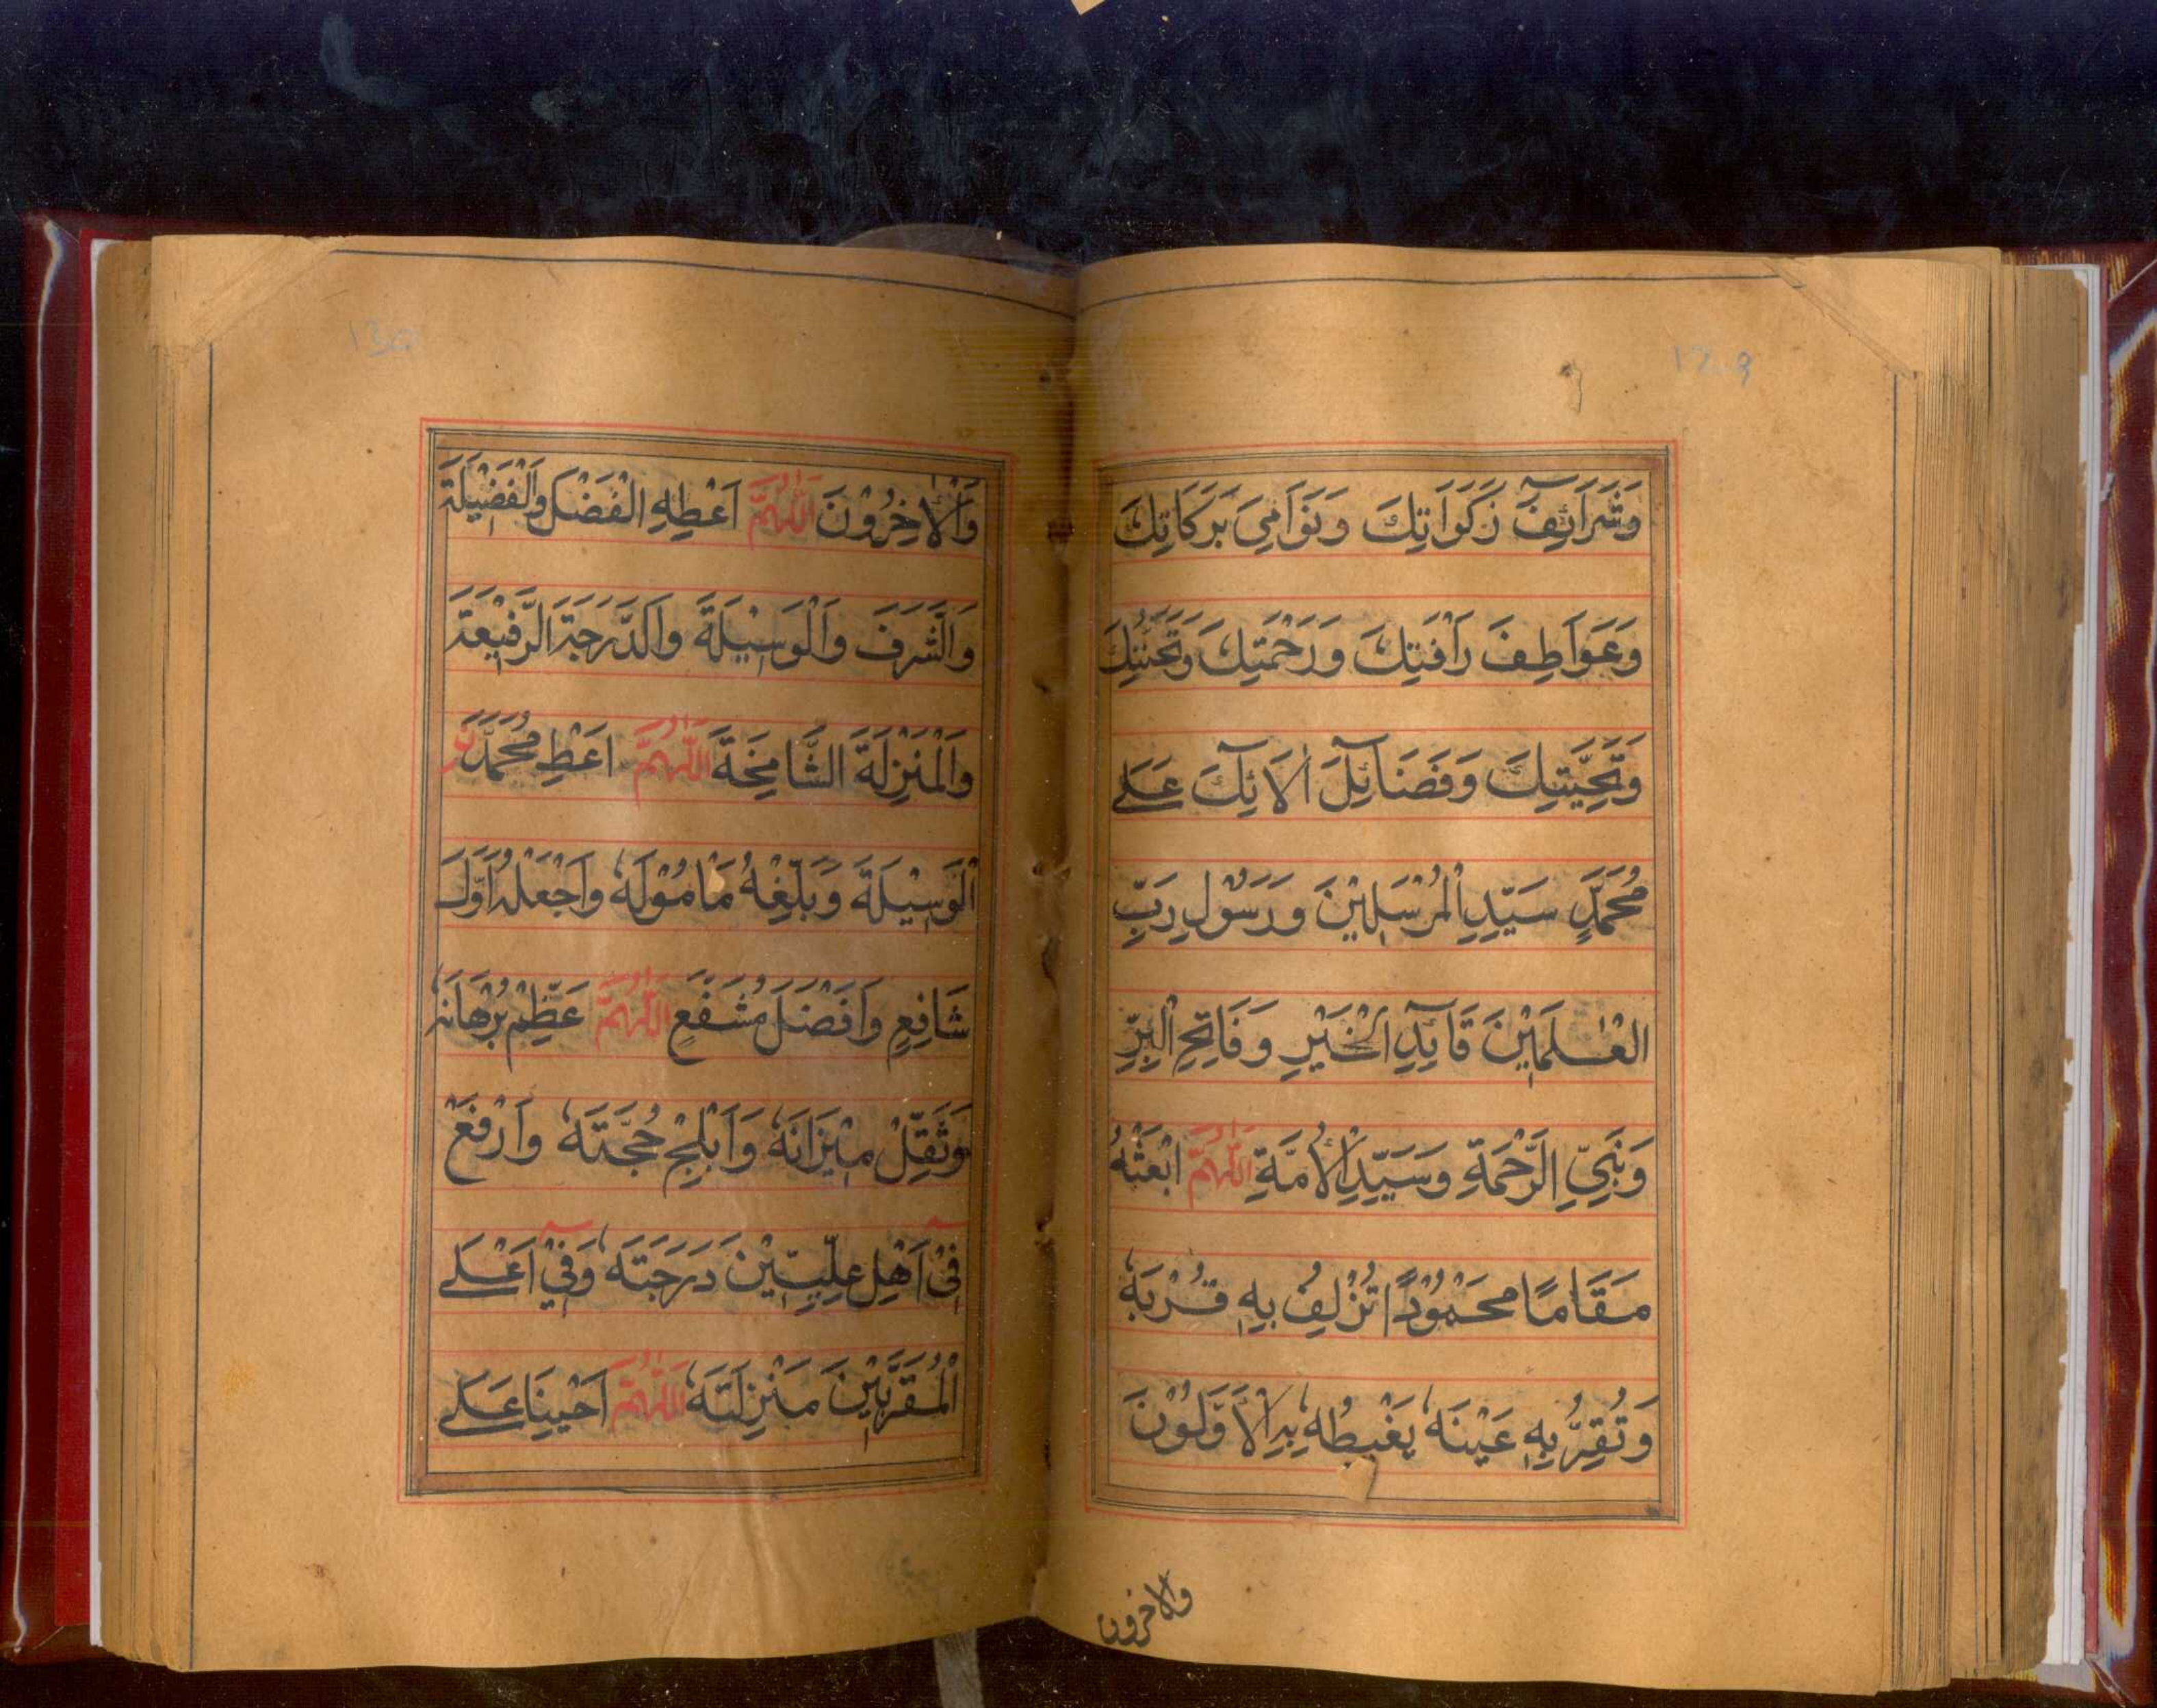 وَشَرَآئِفَ زَكَوَاتِكَ وَنَوَامِيَ بَرَكَاتِكَ
وَعَوَاطِفَ رَأْفَتِكَ وَرَحْمَتِكَ وَتَحَنُّنِكَ
وَتَحِيَّتِكَ وَفَضَآئِلَ اٰلَآئِكَ عَلٰى
مُحَمَّدٍ سَيِّدِ الْمُرْسَلِيْنَ وَرَسُوْلِ رَبِّ
الْعٰلَمِيْنَ قَآئِدِ الْخَيْرِ وَفَاتِحِ الْبِرِّ
وَنَبِيِّ الرَّحْمَةِ وَسَيِّدِ الْاُمَّةِ اَللّٰهُمَّ ابْعَثْهُ
مَقَامًا مَحْمُوْدًا تُزْلِفُ بِهٖ قُرْبَهٗ
وَتُقِرُّ بِهٖ عَيْنَهٗ يَغْبِطُهٗ بِهِ الْاَوَّلُوْنَ
والاخرون
وَالْاٰخِرُوْنَ اَللّٰهُمَّ اَعْطِهِ الْفَضْلَ وَالْفَضِيْلَةَ
وَالشَّرَفَ وَالْوَسِيْلَةَ وَالدَّرَجَةَ الرَّفِيْعَةَ
وَالْمَنْزِلَةَ الشَّامِخَةَ اَللّٰهُمَّ اَعْطِ مُحَمَّدَنِ
الْوَسِيْلَةَ وَبَلِّغْهُ مَامُوْلَهٗ وَاجْعَلْهُ اَوَّلَ
شَافِعٍ وَاَفْضَلَ مُشَفَّعٍ اَللّٰهُمَّ عَظِّمْ بُرْهَانَهٗ
وَثَقِّلْ مِيْزَانَهٗ وَاَبْلِجْ حُجَّتَهٗ وَارْفَعْ
فِيْٓ اَهْلِ عِلِّيِّيْنَ دَرَجَتَهٗ وَفِيْٓ اَعْلَى
الْمُقَرَّبِيْنَ مَنْزِلَتَهٗ اَللّٰهُمَّ اَحْيِنَا عَلٰى